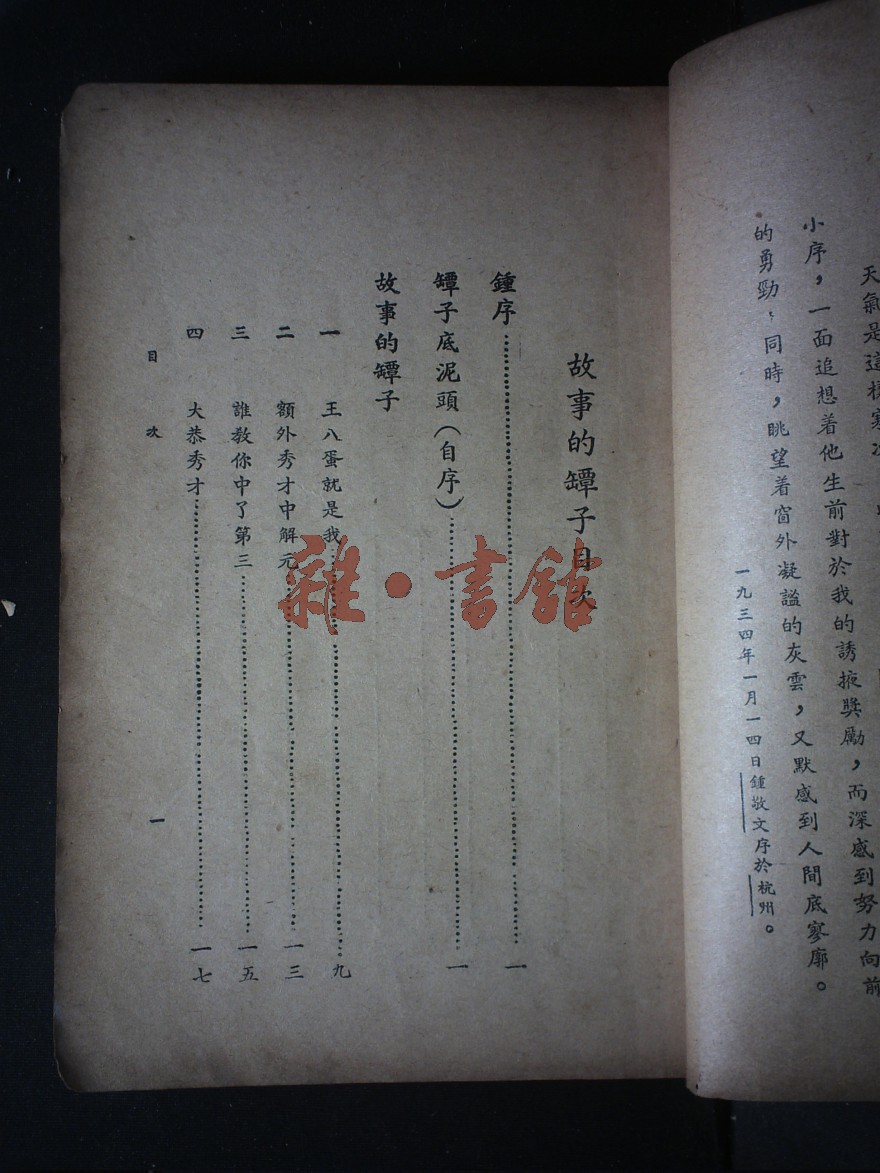 天氣是這樣寒
感到努力向前
小序，一面追想着他生前對於我的誘掖獎勵，而深
的勇勁，同時，眺望着窗外凝謐的灰雲，又默感到人間底寥廓。
一九三四年一月一四日鍾敬文序於杭州。
故事的罈子目次
鍾序……一
罈子底泥頭（自序）……一
故事的罈子
一 王八蛋就是我……九
二 額外秀才中解元……一三
三 誰教你中了第三……一五
四 大恭秀才……一七
目次
一
雜·書館